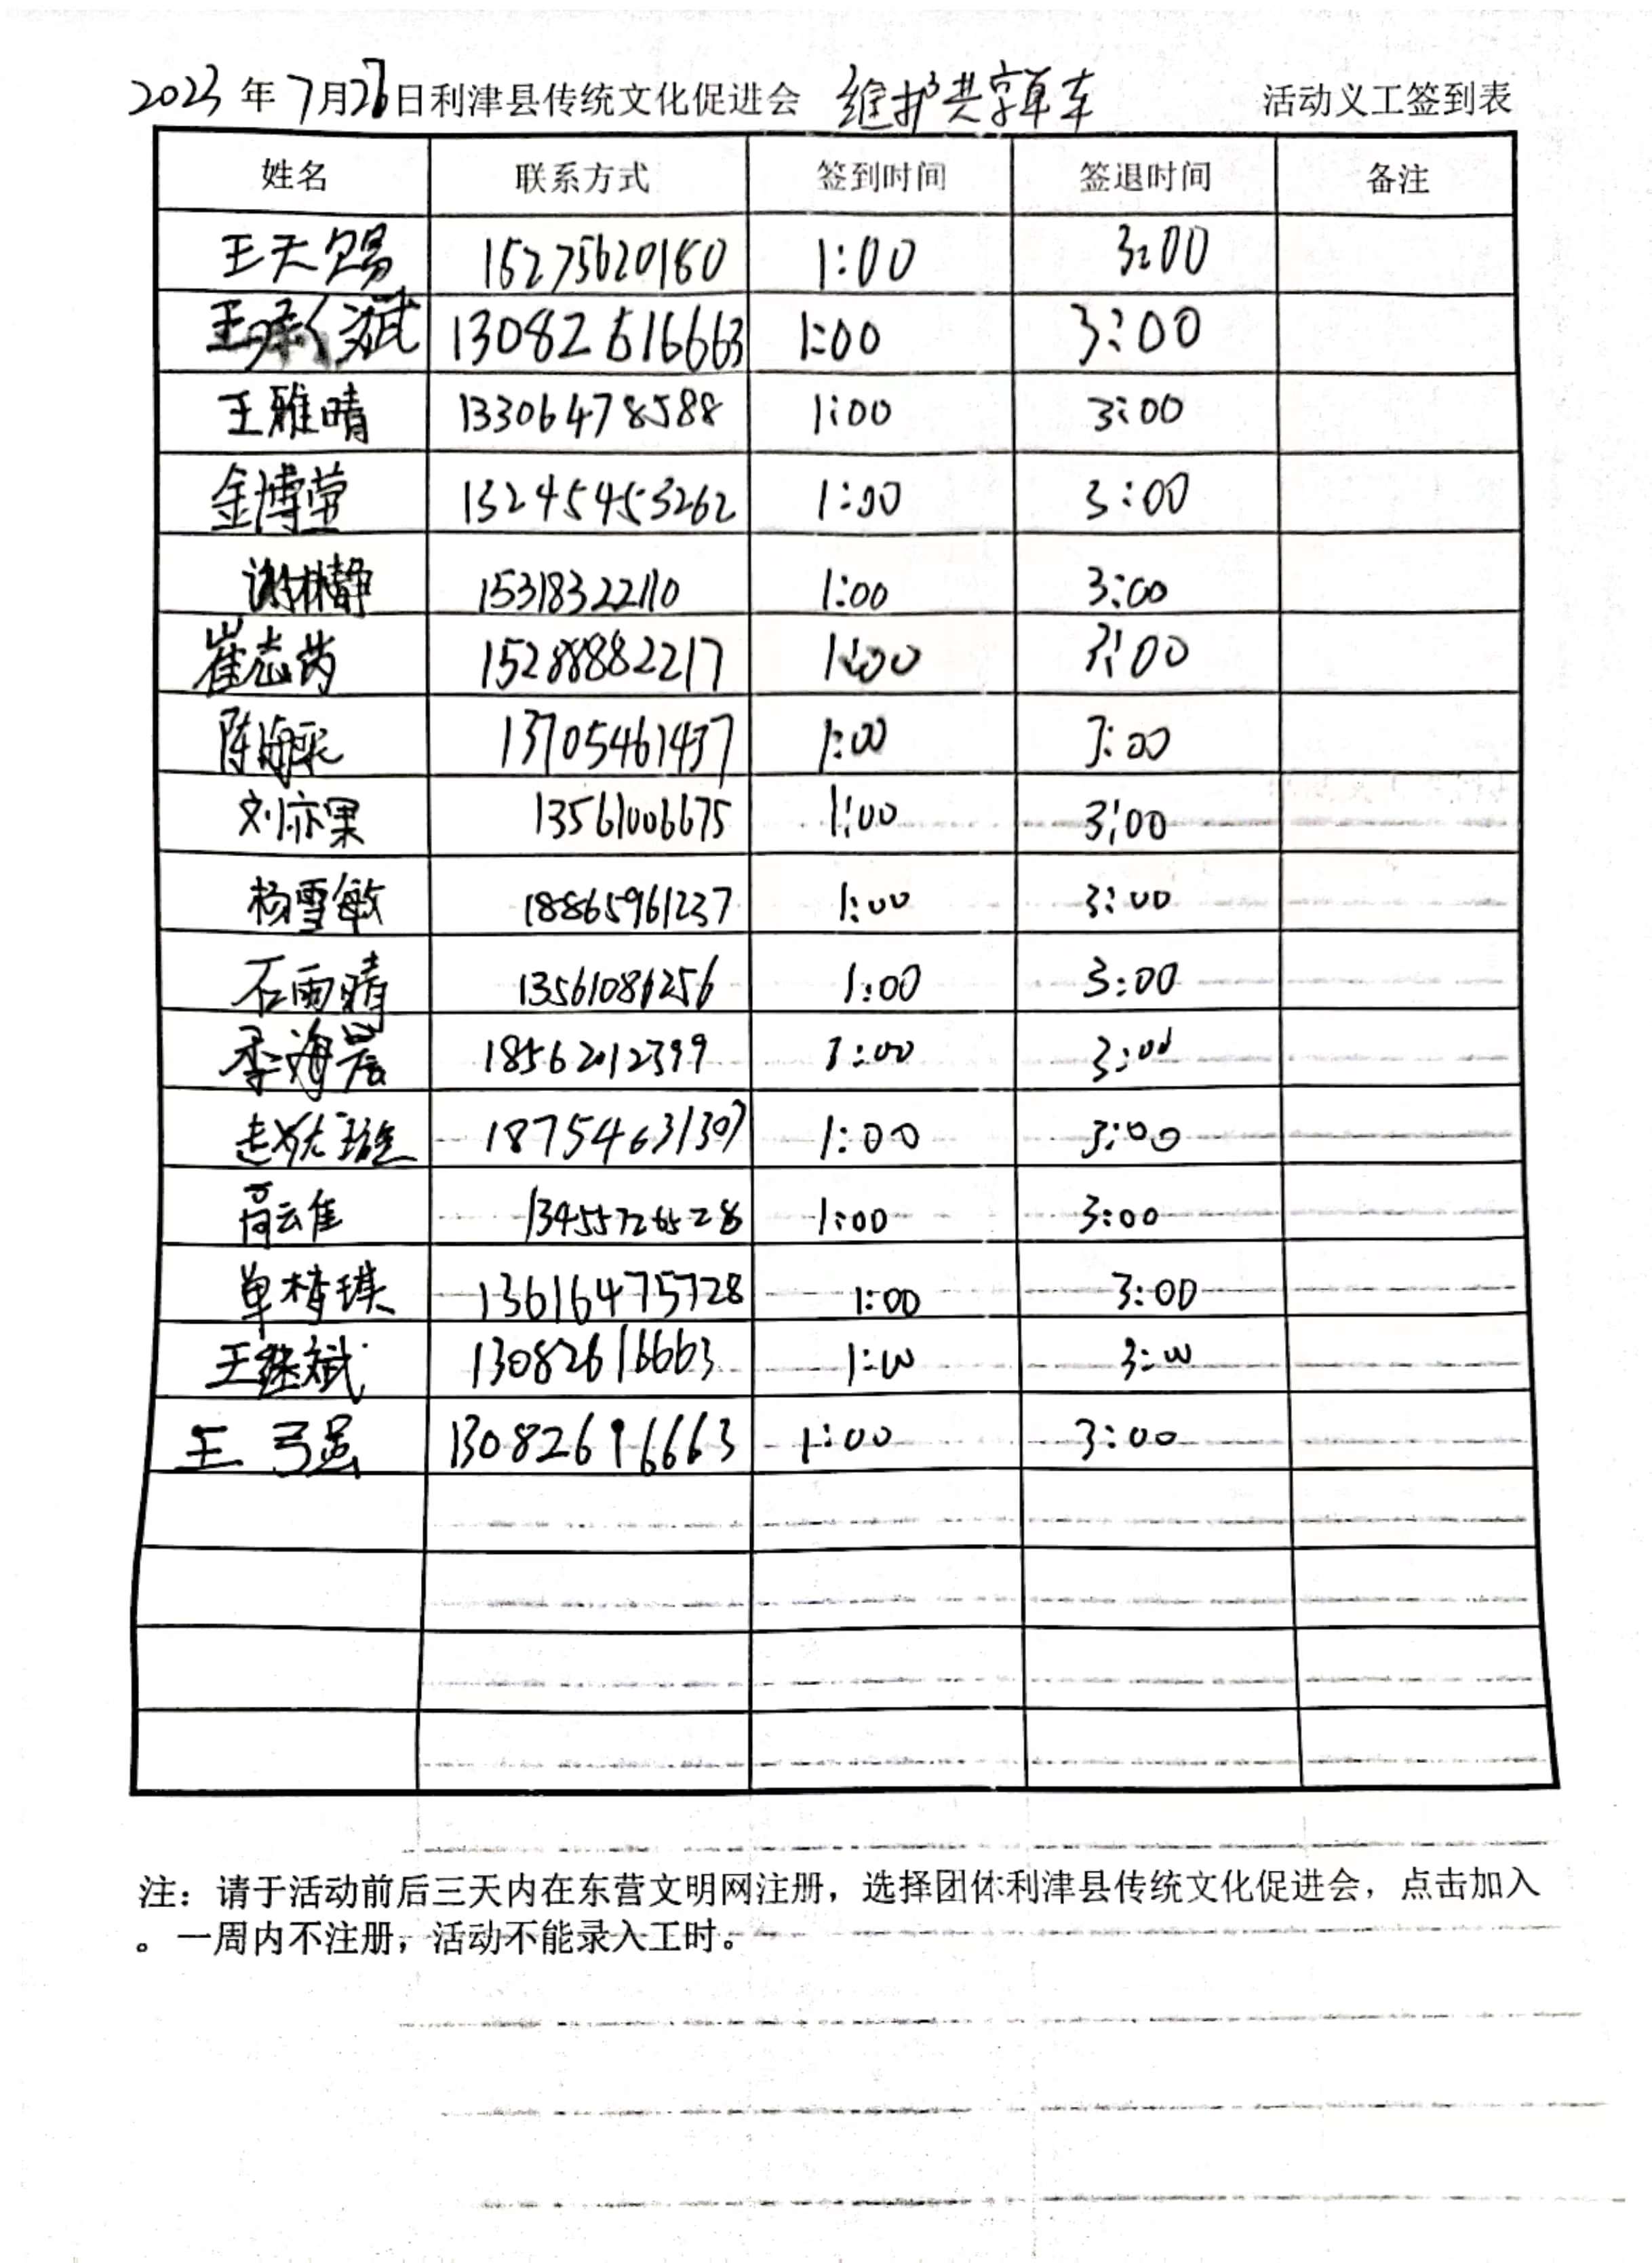 2023年7月27日利津县传统文化促进会 维护共享单车 活动义工签到表
姓名 联系方式 签到时间 签退时间 备注
王天赐 15275620160 1:00 3:00
王 斌 13082616663 1:00 3:00
王雅晴 13306478588 1:00 3:00
金博莹 13245453262 1:00 3:00
谢林静 15318322110 1:00 3:00
崔志芮 15288882217 1:00 3:00
陈海 13705461437 1:00 3:00
刘亦果 13561006675 1:00 3:00
杨雪敏 18865961237 1:00 3:00
石雨晴 13561086256 1:00 3:00
李海晨 18562012399 1:00 3:00
赵 璇 18754631307 1:00 3:00
高云隹 13455726528 1:00 3:00
单梦琪 13616475728 1:00 3:00
王继斌 13082616663 1:00 3:00
王弓 13082616663 1:00 3:00
注：请于活动前后三天内在东营文明网注册，选择团体利津县传统文化促进会，点击加入
。一周内不注册，活动不能录入工时。